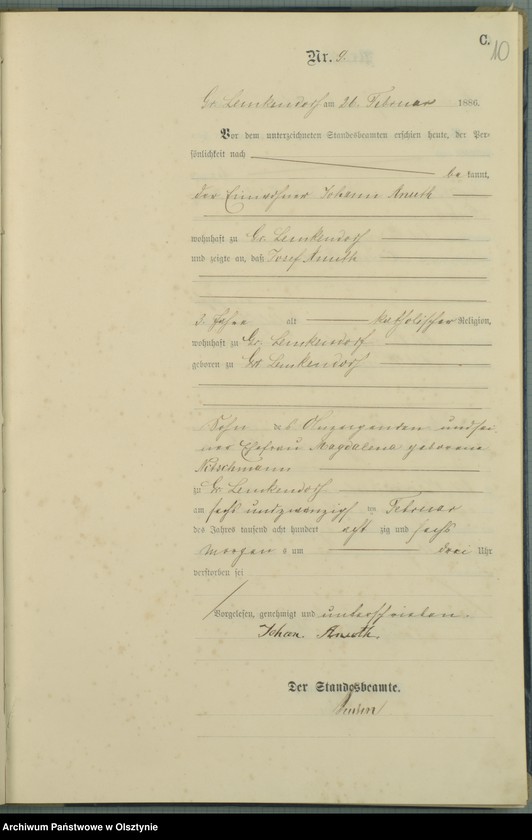 C.
10
Nr. 9.
Gr. Lemkendorf am 26. Februar 1886.
Vor dem unterzeichneten Standesbeamten erschien heute, der Per-
sönlichkeit nach
be kannt,
der Einwohner Johann Anuth
wohnhaft zu Gr. Lemkendorf
und zeigte an, daß Josef Anuth
Jahre alt katholischer Religion,
wohnhaft zu Gr. Lemkendorf
geboren zu Gr. Lemkendorf
Sohn des Anzeigenden und sei
ner Ehefrau Magdalena geborene
zu Gr. Lemkendorf
am sechs und zwanzigst en Februar
des Jahres tausend acht hundert acht zig und sechs
Morgen s um drei Uhr
verstorben sei
Vorgelesen, genehmigt und unterschrieben.
Johan. Anuth.
Der Standesbeamte.
Archiwum Państwowe w Olsztynie